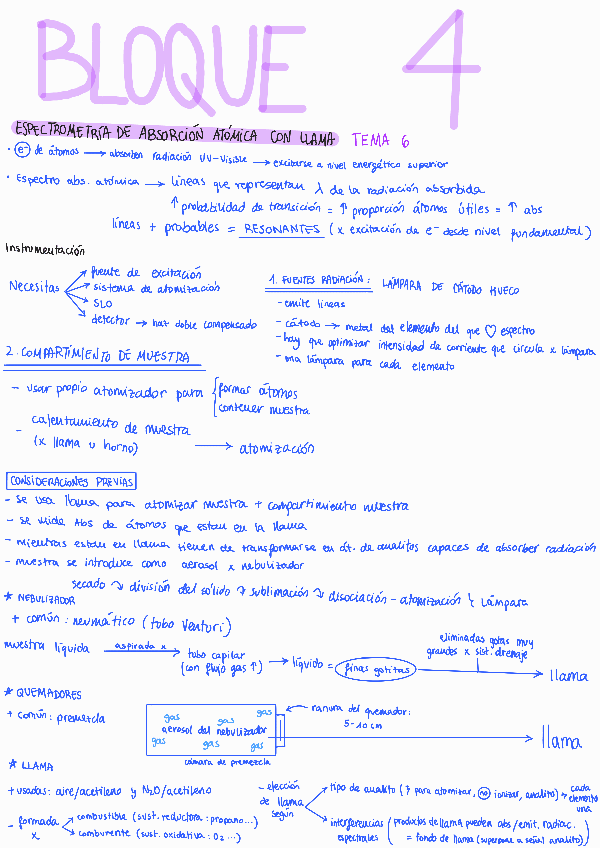 BLOQUE 4
ESPECTROMETRÍA DE ABSORCIÓN ATÓMICA CON LLAMA TEMA 6
· e⁻ de átomos → absorben radiación UV-visible → excitarse a nivel energético superior
· Espectro abs. atómica → líneas que representan λ de la radiación absorbida
↑ probabilidad de transición = ↑ proporción átomos útiles = ↑ abs
líneas + probables = RESONANTES (x excitación de e⁻ desde nivel fundamental)
Instrumentación
Necesitas
fuente de excitación
sistema de atomización
SLO
detector → haz doble compensado
1. FUENTES RADIACIÓN: LÁMPARA DE CÁTODO HUECO
- emite líneas
- cátodo → metal del elemento del que ♡ espectro
- hay que optimizar intensidad de corriente que circula x lámpara
- una lámpara para cada elemento
2. COMPARTIMIENTO DE MUESTRA
- usar propio atomizador para { formar átomos
contener muestra
- calentamiento de muestra
(x llama u horno) → atomización
CONSIDERACIONES PREVIAS
- se usa llama para atomizar muestra + compartimiento muestra
- se mide Abs de átomos que estan en la llama
- mientras estan en llama tienen de transformarse en át. de analitos capaces de absorber radiación
- muestra se introduce como aerosol x nebulizador
secado ↘ división del sólido ↘ sublimación ↘ disociación - atomización lámpara
* NEBULIZADOR
+ común: neumático (tubo Venturi)
muestra líquida aspirada x → tubo capilar
(con flujo gas ↑) → líquido = finas gotitas → llama
eliminadas gotas muy
grandes x sist. drenaje
* QUEMADORES
+ común: premezcla
gas gas gas
aerosol del nebulizador
gas gas gas
cámara de premezcla
ranura del quemador:
5-10 cm
llama
* LLAMA
+ usadas: aire/acetileno y N₂O/acetileno
- formada
x
combustible (sust. reductora: propano...)
comburente (sust. oxidativa: O₂...)
- elección
de llama
según
tipo de analito ( para atomizar, no ionizar, analito) → cada
elemento
una
interferencias
espectrales
(productos de llama pueden abs/emit. radiac.
= fondo de llama (superpone a señal analito))